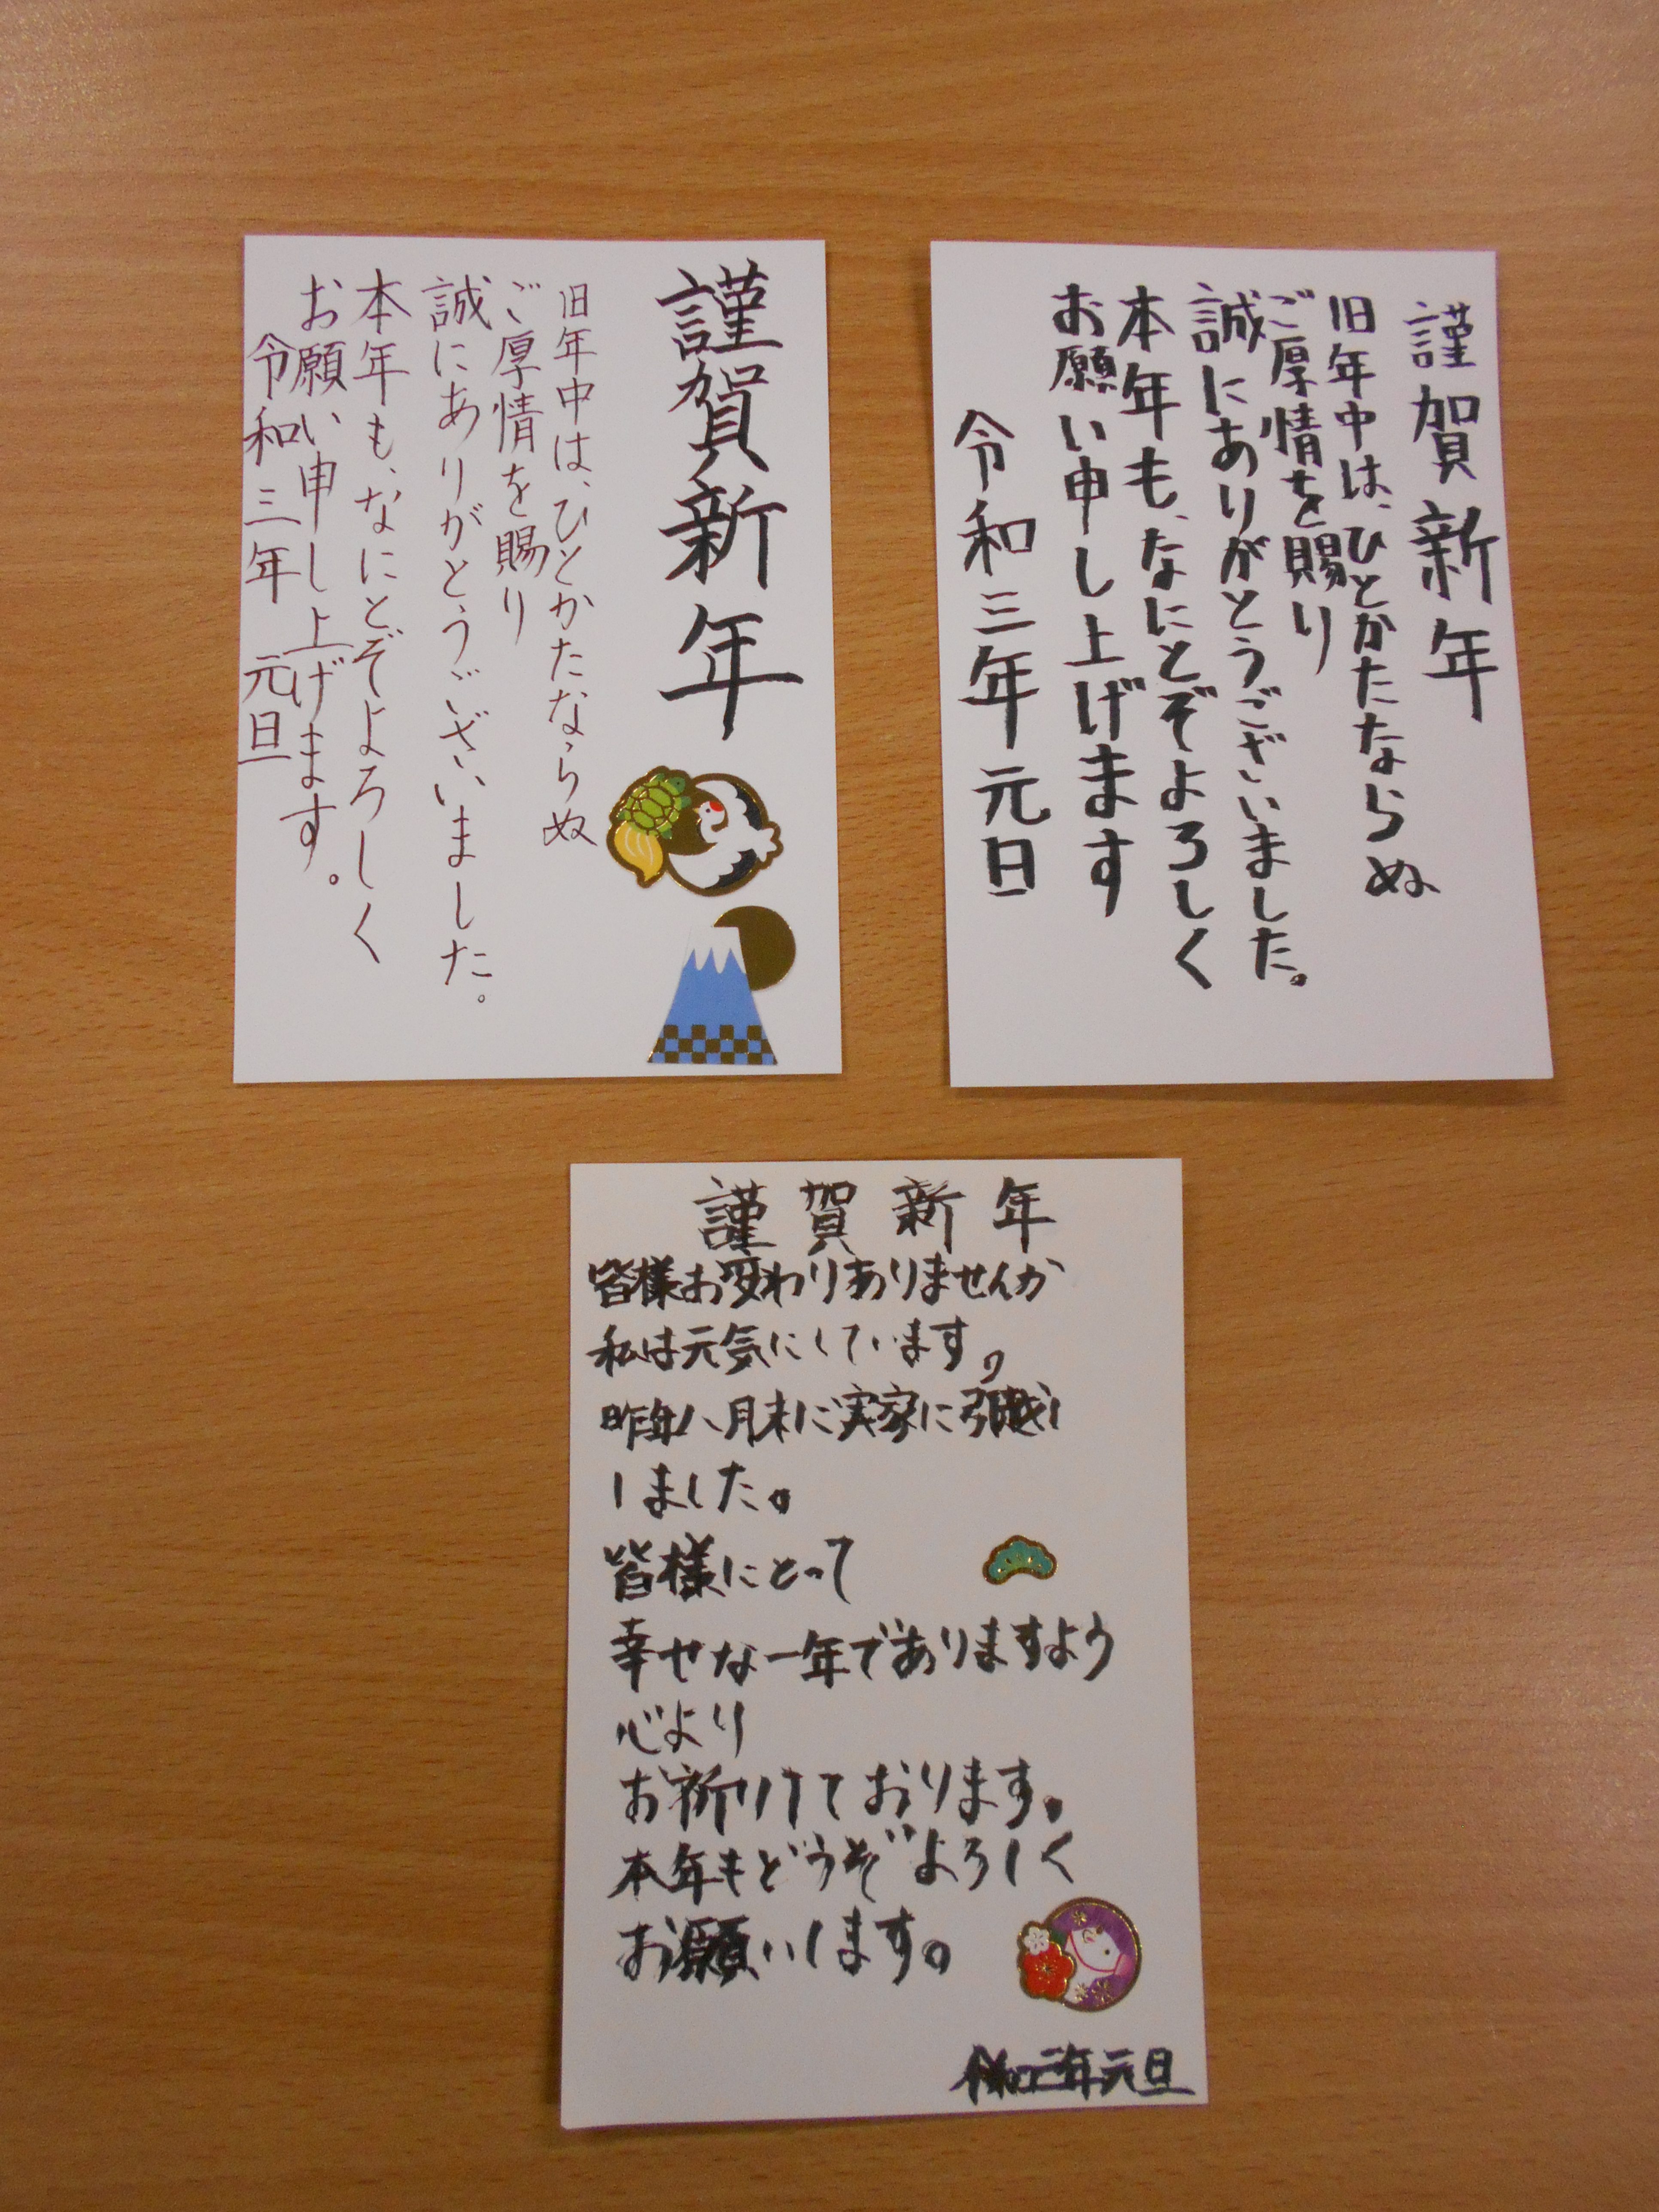 謹賀新年
旧年中は、ひとかたならぬ
ご厚情を賜り
誠にありがとうございました。
本年も、なにとぞよろしく
お願い申し上げます。
令和三年 元旦
謹賀新年
旧年中は、ひとかたならぬ
ご厚情を賜り
誠にありがとうございました。
本年も、なにとぞよろしく
お願い申し上げます
令和三年 元旦
謹賀新年
皆様お変わりありませんか
私は元気にしています。
昨年八月末に実家に引越し
しました。
皆様にとって
幸せな一年でありますよう
心より
お祈りしております。
本年もどうぞよろしく
お願いします。
令和三年元旦